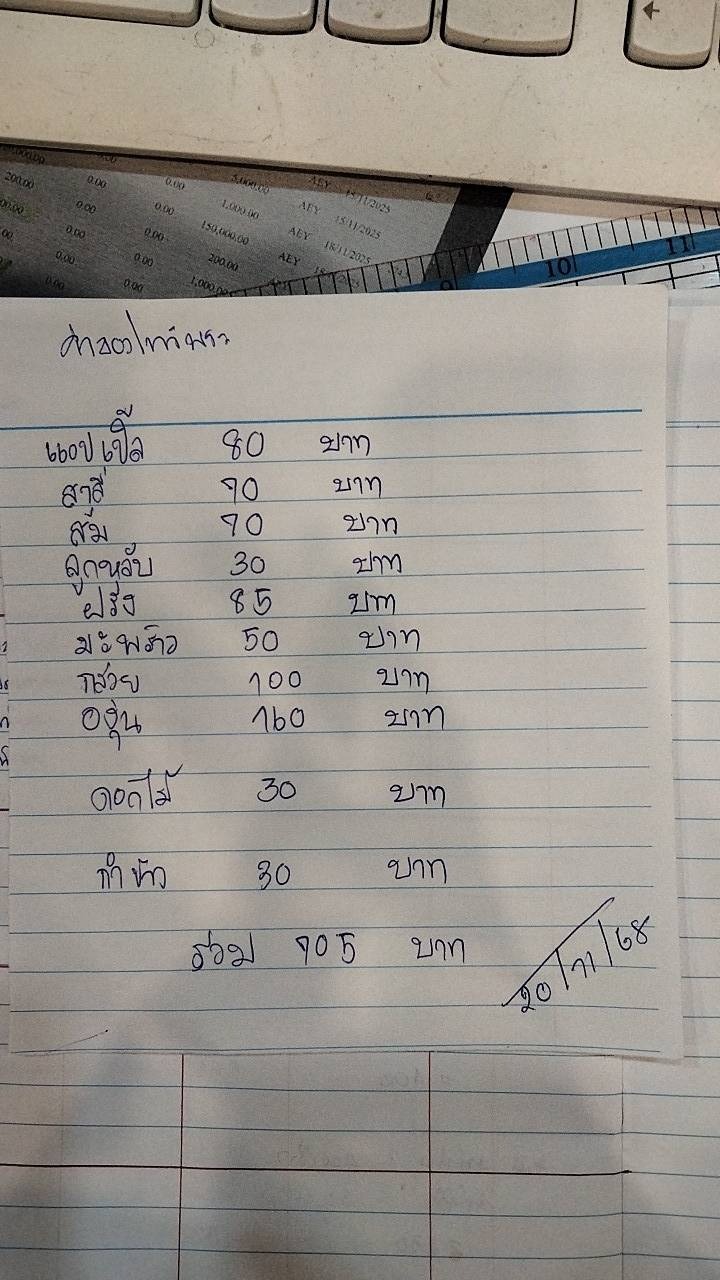 200.00 0.00 0.00 5,000.00 AEY 15/11/2025
0.00 0.00 1,000.00 AEY 15/11/2025
0.00 0.00 150,000.00 AEY 18/11/2025
0.00 0.00 200.00 AEY
0.00 0.00 1,000.00
9 10 11
ค่าของไหว้พระ
แอปเปิ้ล 80 บาท
สาลี่ 70 บาท
ส้ม 70 บาท
ลูกพลับ 30 บาท
ฝรั่ง 85 บาท
มะพร้าว 50 บาท
กล้วย 100 บาท
องุ่น 160 บาท
ดอกไม้ 30 บาท
กำ 30 บาท
รวม 705 บาท
20/11/68